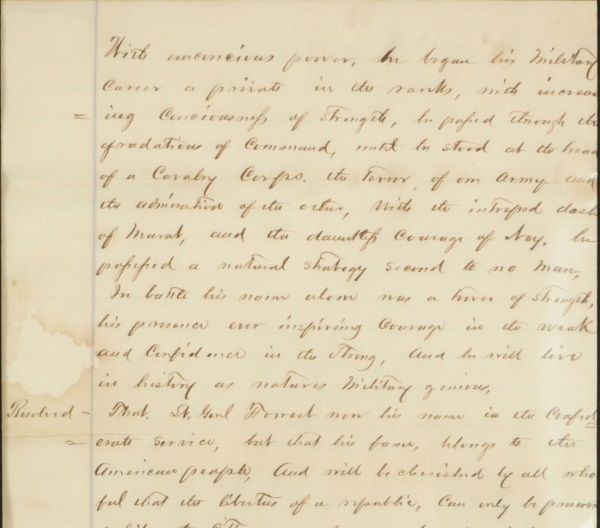 With unconcious power, he began his Military
Career a private in the ranks, with increas
= ing Conciousness of strength, he passed through the
gradations of Command, until he stood at the head
of a Cavalry Corps. the terror of one Army and
the admiration of the other, With the intreped dash
of Murat, and the dauntless Courage of Ney. he
possessed a natural strategy second to no man,
In battle his name alone was a tower of strength,
his presence ever inspiring Courage in the weak
and Confidence in the Strong, And he will live
in history as natures Military genious,
Resolved - That. Lt. Genl Forrest won his name in the Confed
= erate service, but that his fame, belongs to the
American people, And will be cherished by all who
feel that the liberties of a republic, Can only be preserv